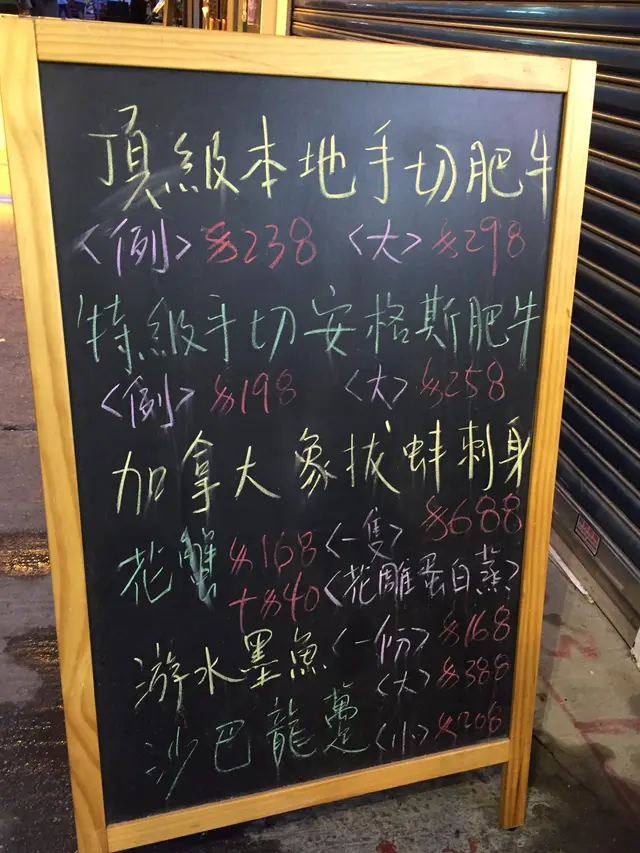 頂級本地手切肥牛
<例> $238 <大> $298
特級手切安格斯肥牛
<例> $198 <大> $258
加拿大象拔蚌刺身
<一隻> $688
花蟹 $168
+$40 <花雕蛋白蒸>
游水墨魚 <一份> $168
<大> $388
沙巴龍躉 <小> $208